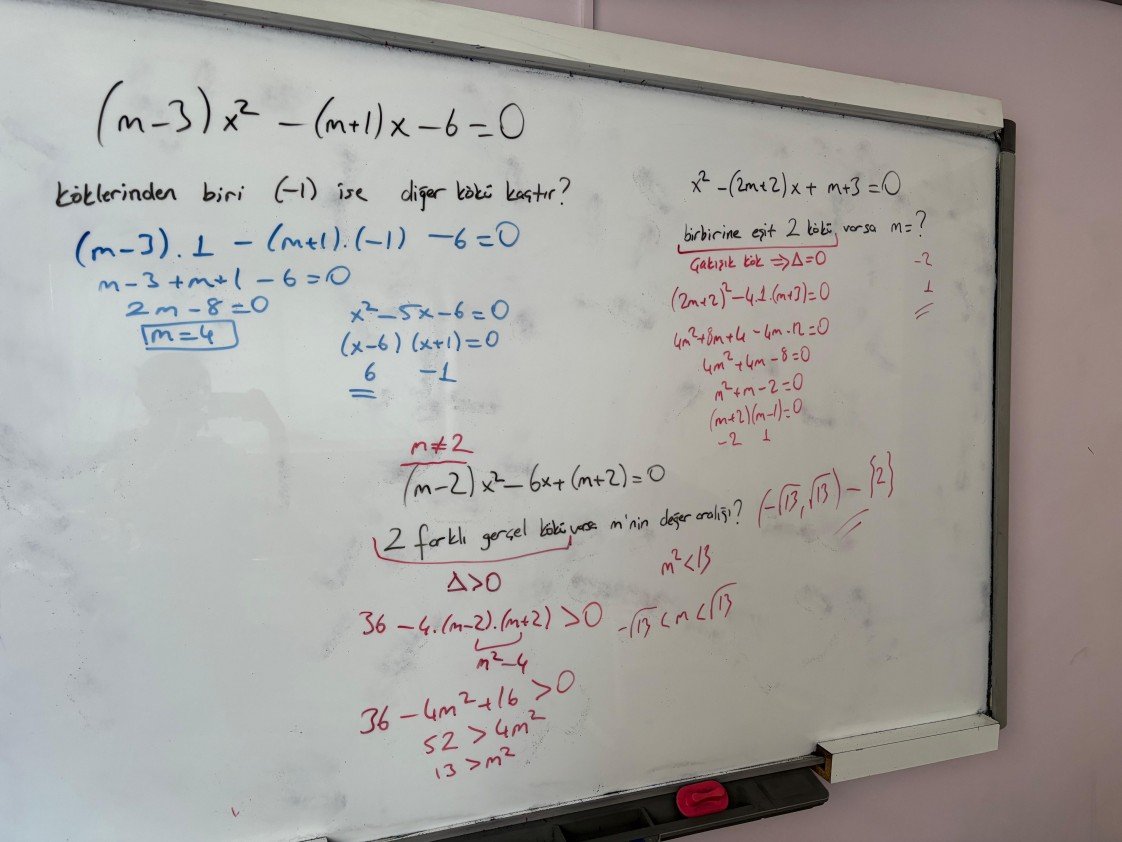 (m-3)x² - (m+1)x - 6 = 0
köklerinden biri (-1) ise diğer kökü kaçtır?
(m-3).1 - (m+1).(-1) - 6 = 0
m-3+m+1-6=0
2m-8=0
m=4
x²-5x-6=0
(x-6)(x+1)=0
6 -1
x²-(2m+2)x+m+3=0
birbirine eşit 2 kökü varsa m=?
Çakışık kök ⇒ Δ=0
(2m+2)²-4.1.(m+3)=0
4m²+8m+4-4m-12=0
4m²+4m-8=0
m²+m-2=0
(m+2)(m-1)=0
-2 1
-2
1
m≠2
(m-2)x²-6x+(m+2)=0
2 farklı gerçel kökü varsa m'nin değer aralığı?
(-√13,√13)-{2}
Δ>0
36-4.(m-2).(m+2)>0
m²-4
36-4m²+16>0
52>4m²
13>m²
m²<13
-√13<m<√13